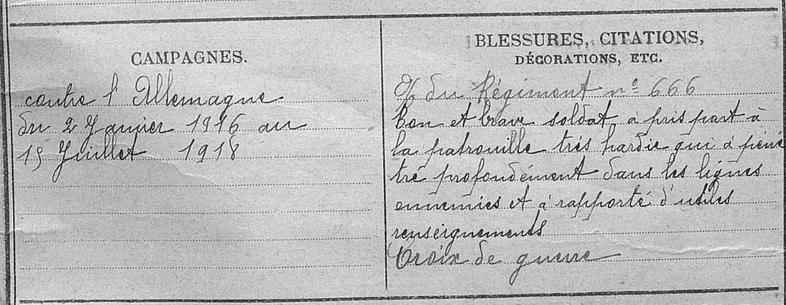 CAMPAGNES.
contre l'Allemagne
du 2 Janvier 1916 au
15 Juillet 1918
BLESSURES, CITATIONS,
DÉCORATIONS, ETC.
O/ du Régiment n° 666
Bon et brave soldat a pris part à
la patrouille très hardie qui a péné
tré profondément dans les lignes
ennemies et a rapporté d'utiles
renseignements
Croix de guerre